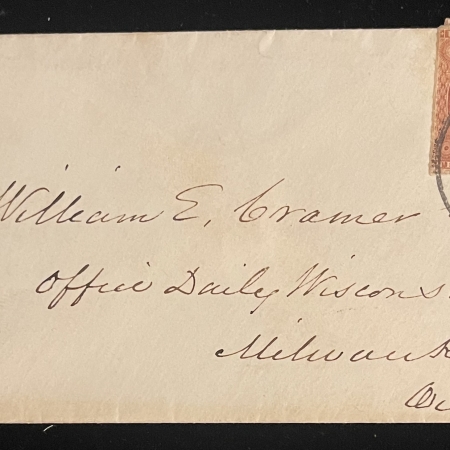 William E. Cramer
Office Daily Wiscons
Milwauk